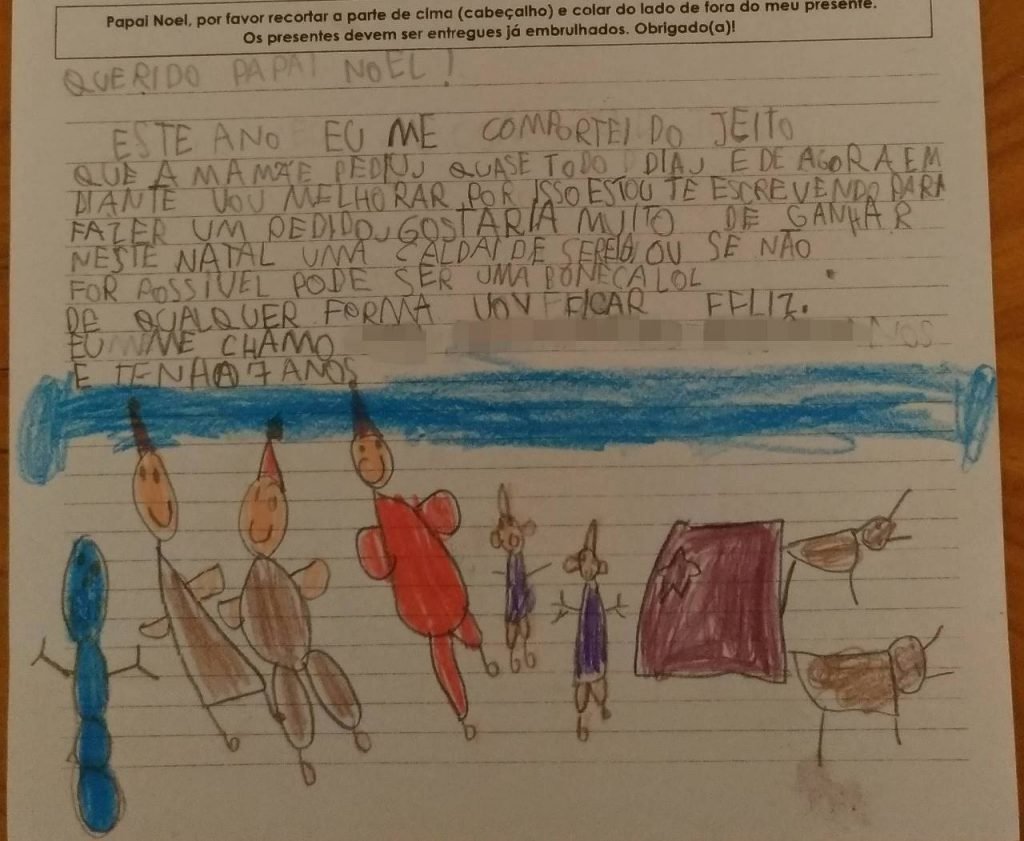 Papai Noel, por favor recortar a parte de cima (cabeçalho) e colar do lado de fora do meu presente.
Os presentes devem ser entregues já embrulhados. Obrigado(a)!
QUERIDO PAPAI NOEL!
ESTE ANO EU ME COMPORTEI DO JEITO
QUE A MAMÃE PEDIU, QUASE TODO DIA, E DE AGORA EM
DIANTE VOU MELHORAR, POR ISSO ESTOU TE ESCREVENDO PARA
FAZER UM PEDIDO, GOSTARIA MUITO DE GANHAR
NESTE NATAL UMA CALDA DE SEREIA, OU SE NÃO
FOR POSSÍVEL PODE SER UMA BONECA LOL
DE QUALQUER FORMA VOU FICAR FELIZ.
EU ME CHAMO
E TENHO 7 ANOS